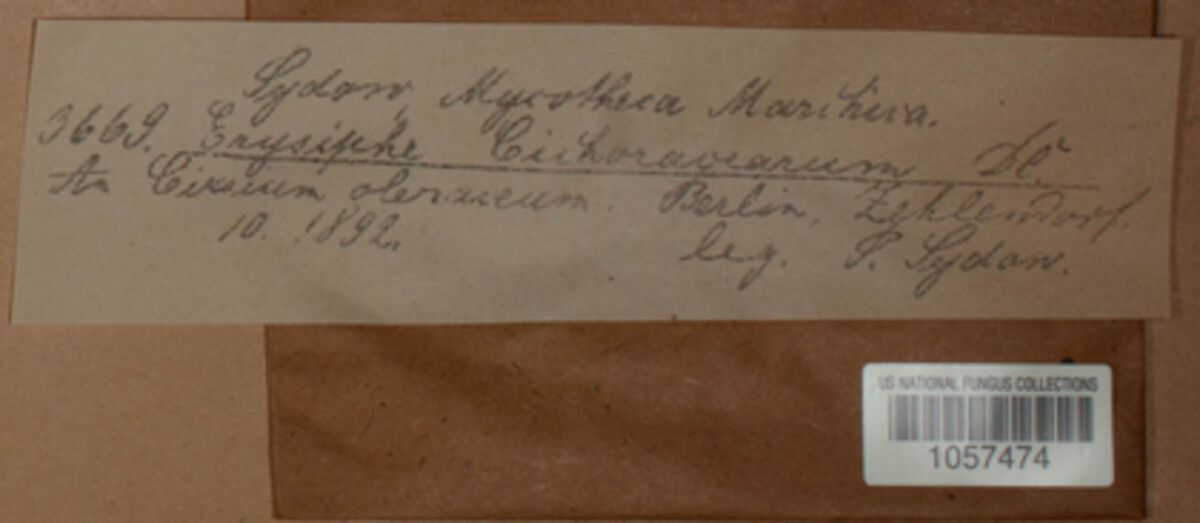 Sydow, Mycotheca Marchica.
3669. Erysiphe Cichoracearum DC.
An Cirsium oleraceum. Berlin, Zehlendorf.
10. 1892. leg. P. Sydow.
US NATIONAL FUNGUS COLLECTIONS
1057474